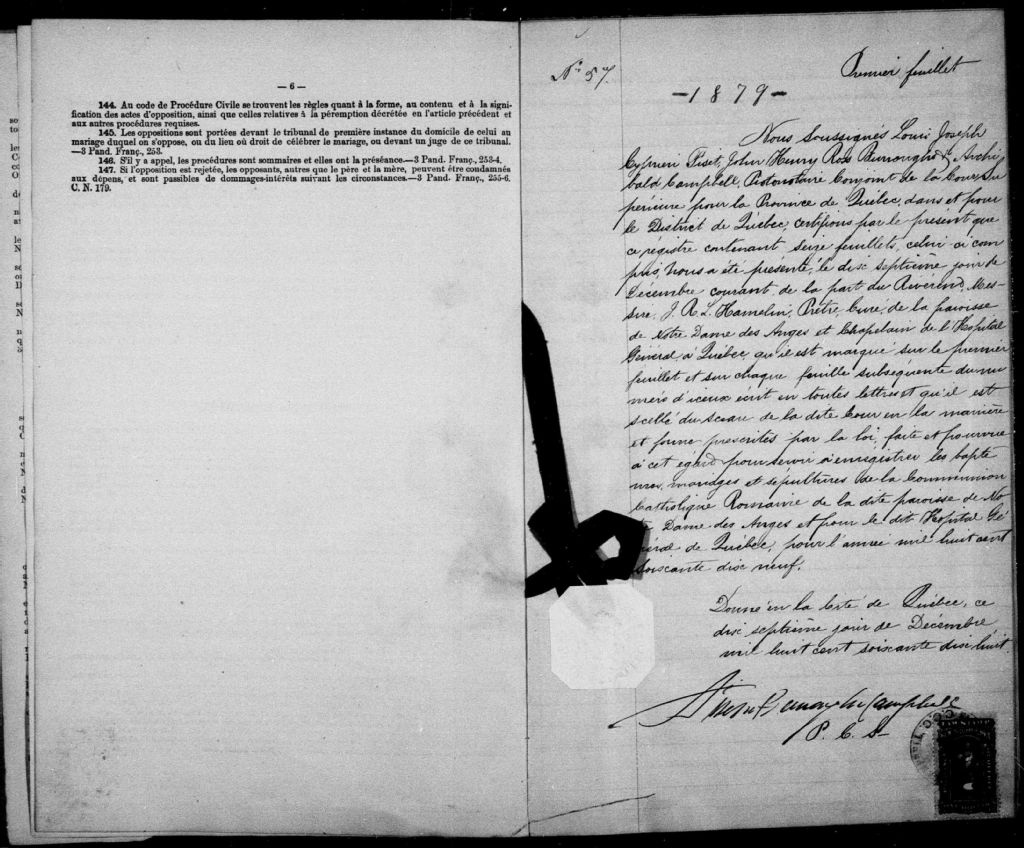 — 6 —
144. Au code de Procédure Civile se trouvent les règles quant à la forme, au contenu et à la signi-
fication des actes d'opposition, ainsi que celles relatives à la péremption décrétée en l'article précédent et
aux autres procédures requises.
145. Les oppositions sont portées devant le tribunal de première instance du domicile de celui au
mariage duquel on s'oppose, ou du lieu où droit de célébrer le mariage, ou devant un juge de ce tribunal.
—3 Pand. Franç., 253.
146. S'il y a appel, les procédures sont sommaires et elles ont la préséance.—3 Pand. Franç., 253-4.
147. Si l'opposition est rejetée, les opposants, autres que le père et la mère, peuvent être condamnés
aux dépens, et sont passibles de dommages-intérêts suivant les circonstances.—3 Pand. Franç., 255-6.
C. N. 179.
No 57.
Premier feuillet
—1879—
Nous Soussignés Louis Joseph
Cyprien Fiset, John Henry Ross Burroughs & Archi
bald Campbell, Protonotaire Conjoint de la Cour Su
périeure pour la Province de Québec, dans et pour
le District de Québec, certifions par le présent que
ce régistre contenant seize feuillets, celui ci com
pris, Nous a été présenté, le disc septième jour de
Décembre courant, de la part du Révérend Mes-
sire, J. R. L. Hamelin, Prêtre, Curé, de la paroisse
de Notre Dame des Anges et Chapelain de l'Hopital
Général, à Québec, qu'il est marqué sur le premier
feuillet et sur chaque feuille subséquente du nu
méro d'iceux écrit en toutes lettres et qu'il est
scellé du sceau de la dite Cour en la manière
et forme prescrites par la loi, faite et pourvue
à cet égard pour servir à enregistrer les baptê
mes, mariages et sépultures de la Communion
Catholique Romaine de la dite paroisse de No
tre Dame des Anges et pour le dit Hopital Gé
néral de Québec, pour l'année mil huit cent
soiscante disc neuf.
Donné en la Cité de Québec, ce
disc septième jour de Décembre
mil huit cent soiscante disc huit.
Fiset Burroughs Campbell
P. C. S.